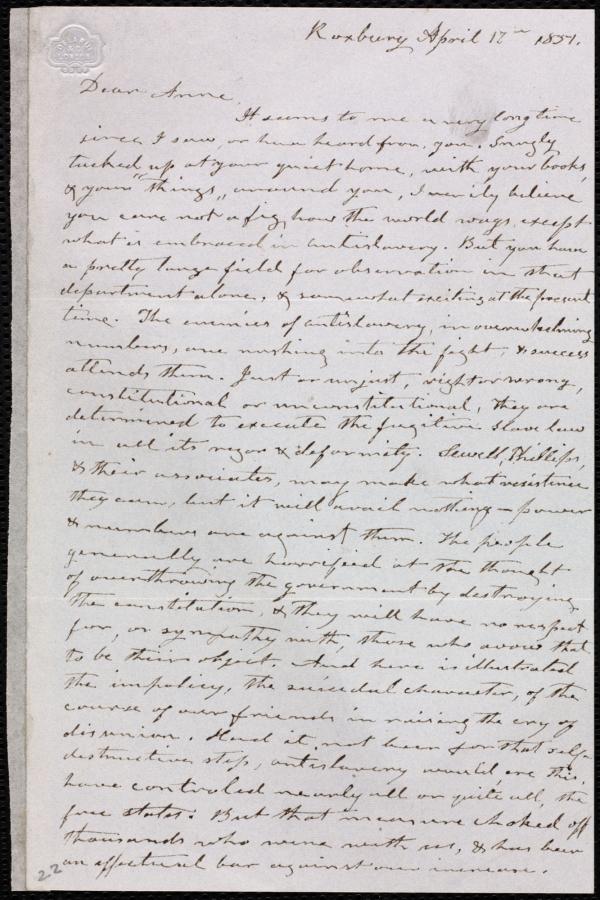 Roxbury April 12th 1851.
Dear Anne,
It seems to me a very long time
since I saw, or have heard from, you. Snugly
tucked up at your quiet home, with your books,
& your "things" around you, I verily believe
you care not a fig how the world wags, except
what is embraced in antislavery. But you have
a pretty large field for observation in that
department alone, & somewhat exciting at the present
time. The enemies of antislavery, in overwhelming
numbers, are rushing into the fight, & success
attends them. Just or unjust, right or wrong,
constitutional or unconstitutional, they are
determined to execute the fugitive slave law
in all its rigor & deformity. Sewell, Phillips,
& their associates, may make what resistance
they can, but it will avail nothing – power
& numbers are against them. The people
generally are horrified at the thought
of overthrowing the government by destroying
the constitution, & they will have no respect
for, or sympathy with, those who avow that
to be their object. And here is illustrated
the impolicy, the suicidal character, of the
course of our friends in raising the cry of
disunion. Had it not been for that self-
destructive step, antislavery would, ere this,
have controled nearly all or quite all, the
free states. But that measure choked off
thousands who were with us, & has been
an effectual bar against our increase.
22